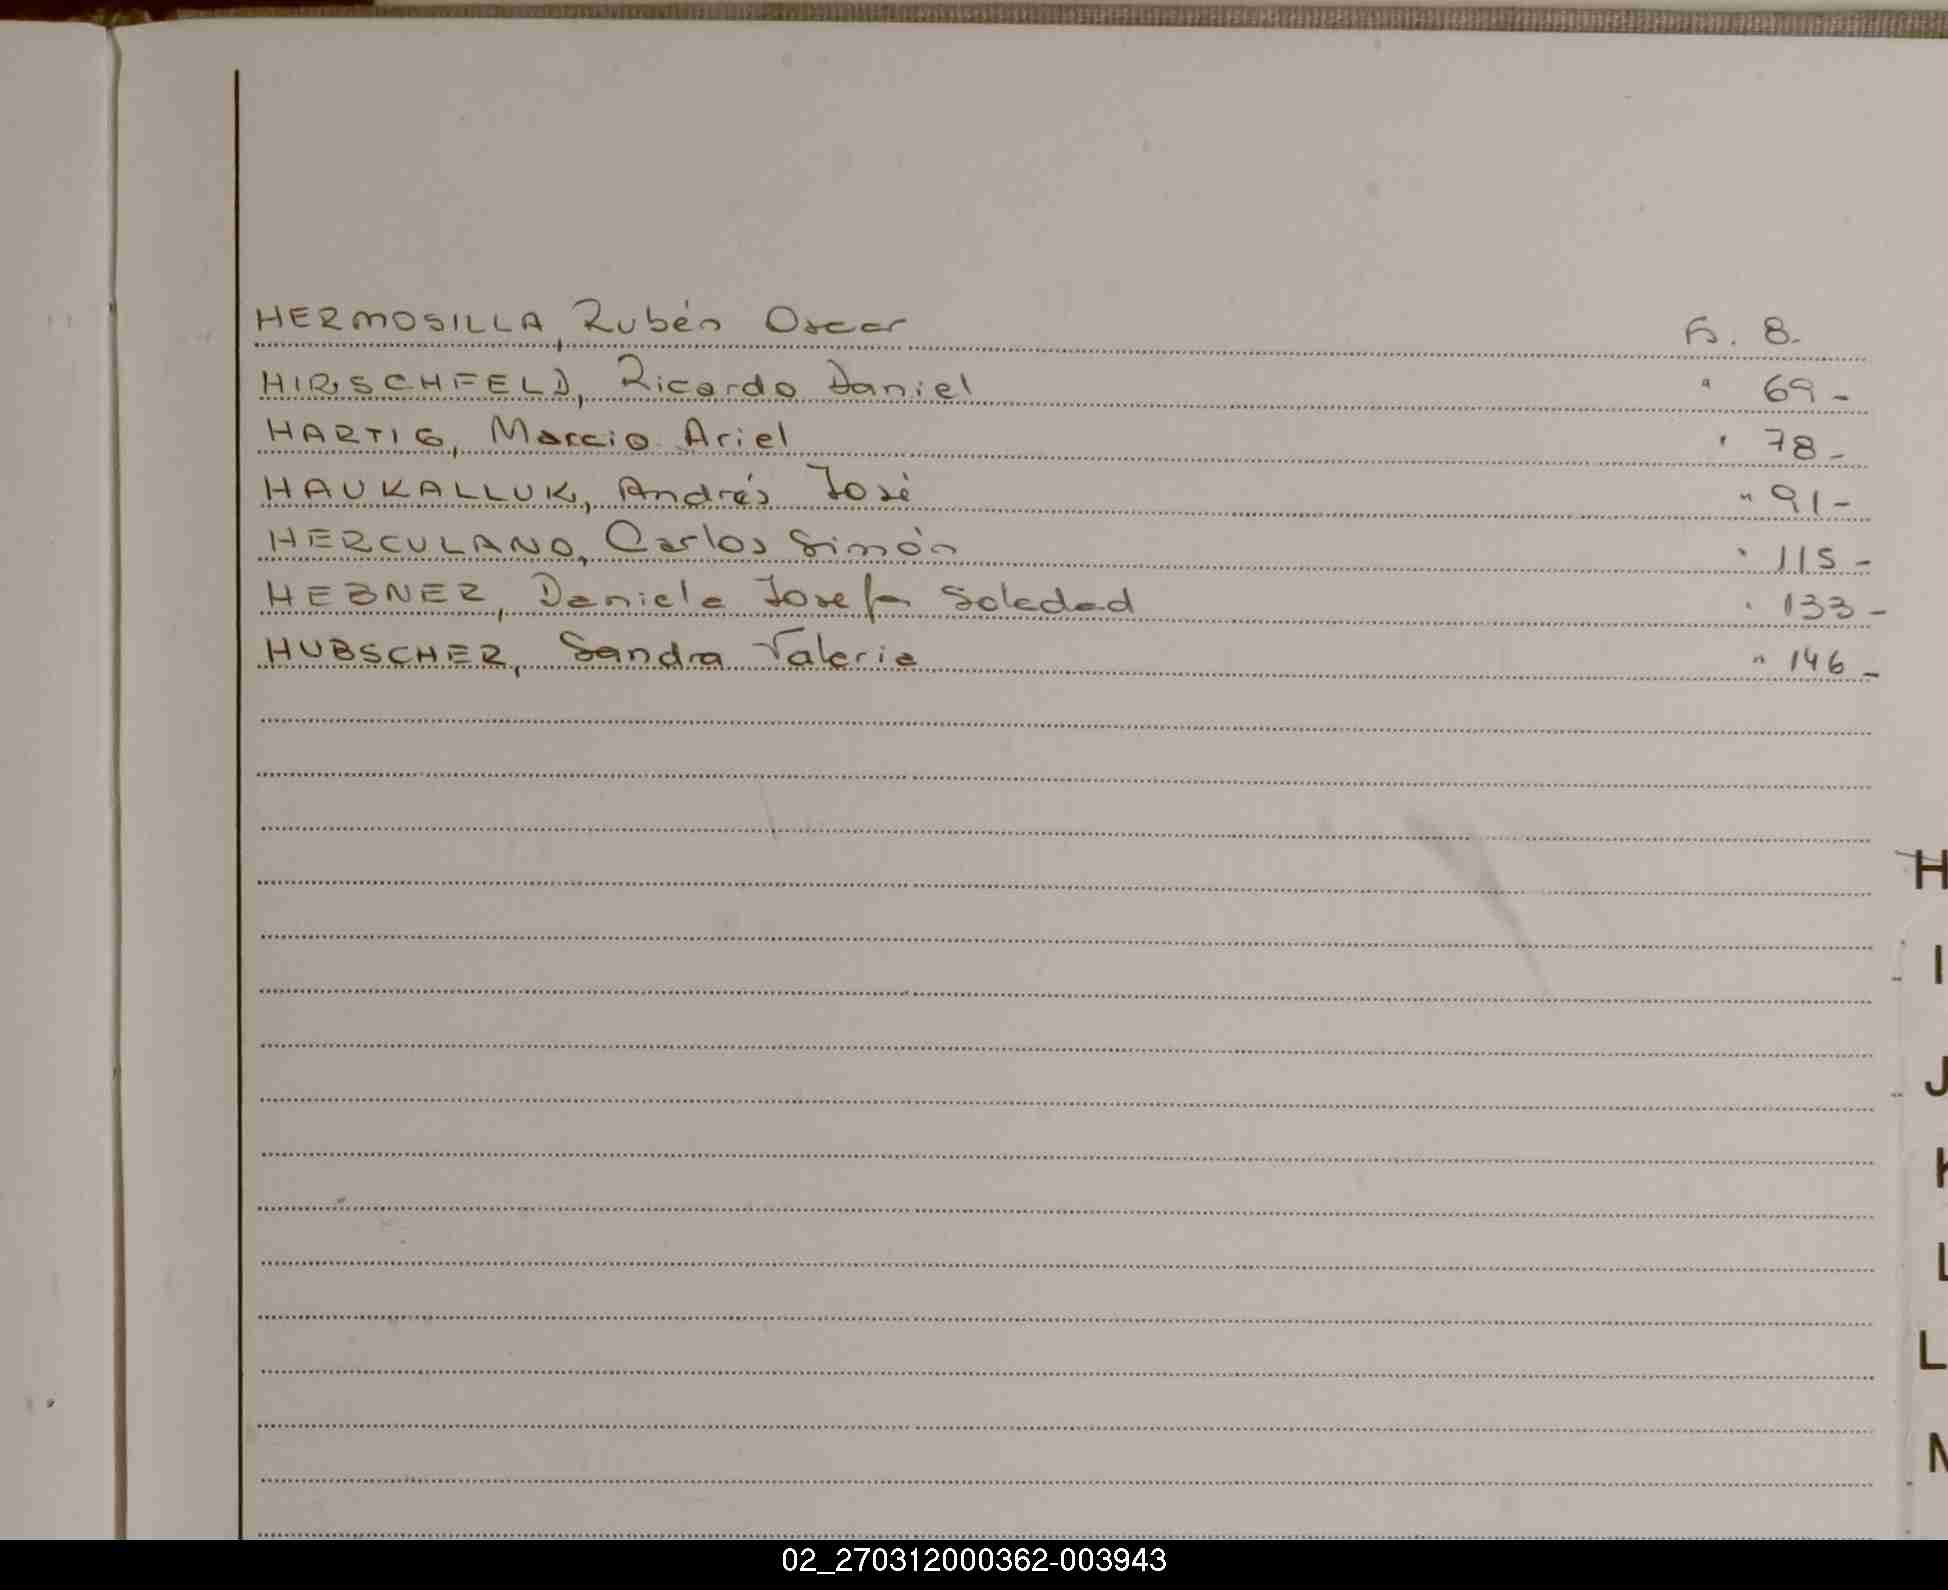 HERMOSILLA, Rubén Oscar Fs. 8.-
HIRSCHFELD, Ricardo Daniel " 69-
HARTIG, Marcio Ariel " 78-
HAUKALLUK, Andrés José " 91-
HERCULANO, Carlos Simón " 115-
HEBNER, Daniela Josefa Soledad " 133-
HUBSCHER, Sandra Valeria " 146-
H
I
J
K
L
L
M
02_270312000362-003943